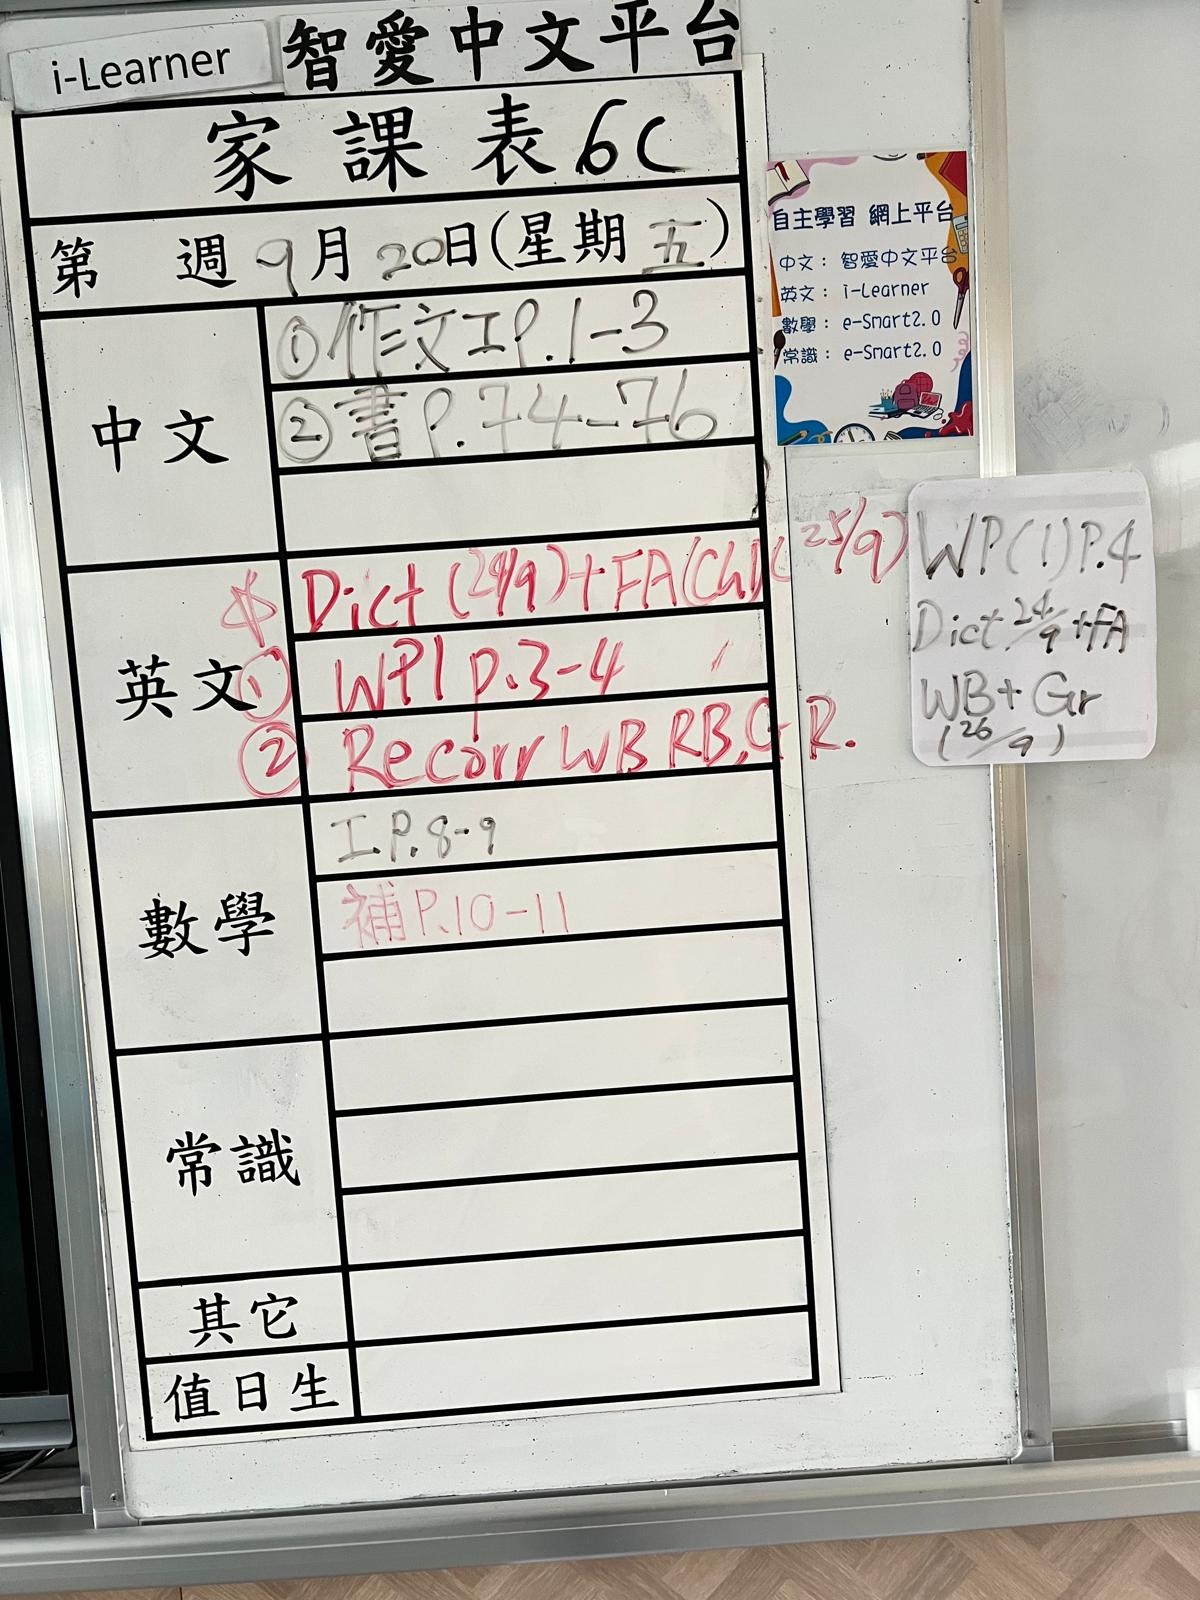 i-Learner 智愛中文平台
家課表 6C
第 週 9月20日(星期五)
中文
①作文工P.1-3
②書P.74-76
英文
* Dict (24/9)+FA(Ch1)( 25/9)
① WP1 p.3-4
② Recorr WB RB, GR.
數學
工.P.8-9
補P.10-11
常識
其它
值日生
自主學習 網上平台
中文： 智愛中文平台
英文： i-Learner
數學： e-Smart2.0
常識： e-Smart2.0
WP(1)P.4
Dict 24/9 +FA
WB+Gr
(26/9)